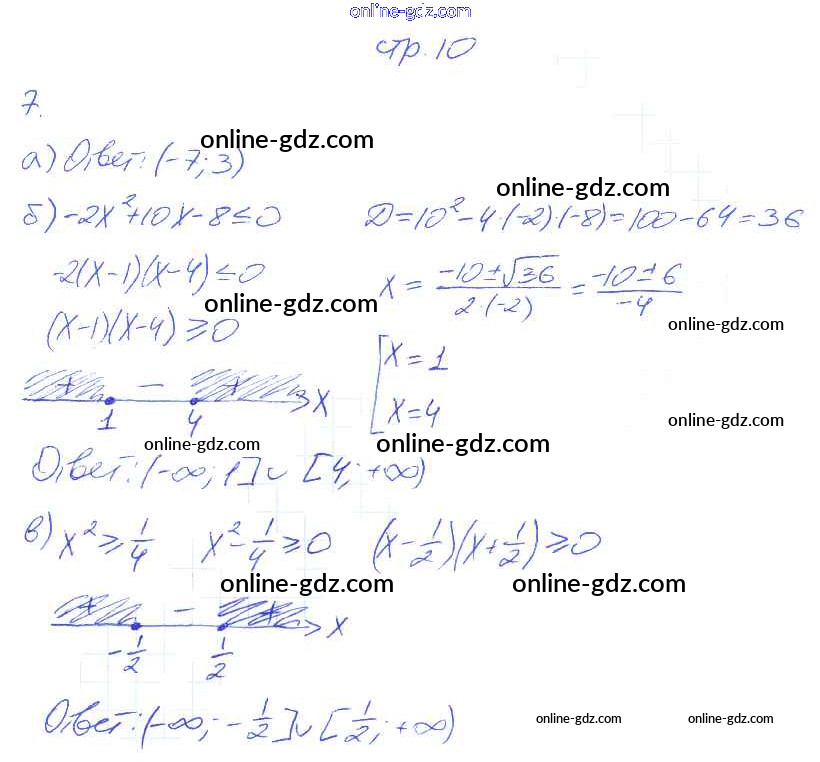 online-gdz.com
стр. 10
7.
online-gdz.com
а) Ответ: (-7; 3)
online-gdz.com
б) -2x²+10x-8≤0 D=10²-4·(-2)·(-8)=100-64=36
-2(x-1)(x-4)≤0 x = (-10±√36)/(2·(-2)) = (-10±6)/(-4)
online-gdz.com
(x-1)(x-4)≥0 online-gdz.com
[x=1
+ - + x
1 4 x=4
online-gdz.com
online-gdz.com online-gdz.com
Ответ: (-∞; 1]∪[4; +∞)
в) x²≥1/4 x²-1/4≥0 (x-1/2)(x+1/2)≥0
online-gdz.com online-gdz.com
+ - + x
-1/2 1/2
Ответ: (-∞; -1/2]∪[1/2; +∞)
online-gdz.com online-gdz.com